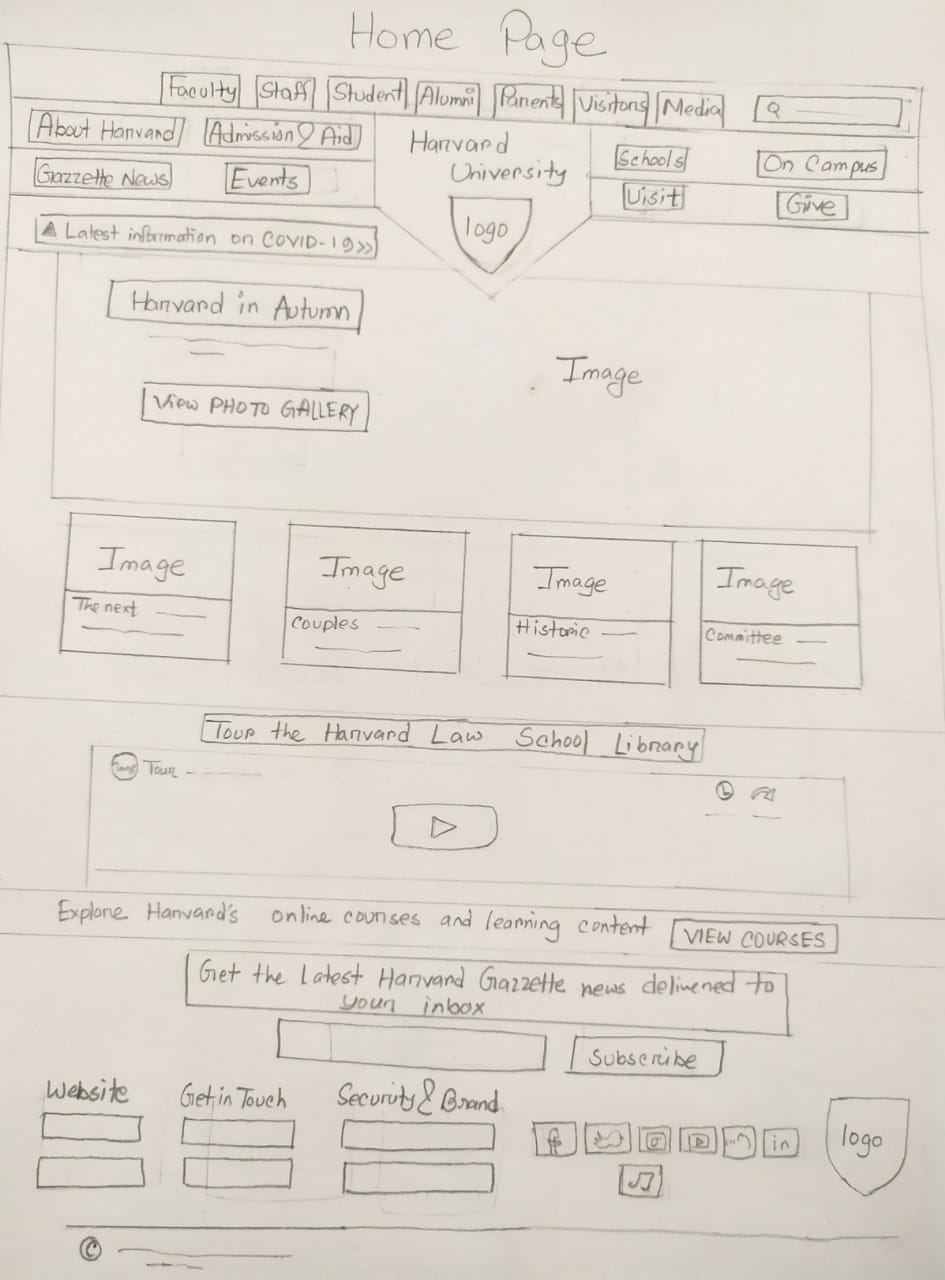 Home Page
Faculty Staff Student Alumni Parents Visitors Media
About Harvard Admission & Aid Harvard University Schools On Campus
Gazzette News Events Visit Give
logo
Latest information on COVID-19>>
Harvard in Autumn
Image
View PHOTO GALLERY
Image Image Image Image
The next Couples Historic Committee
Tour the Harvard Law School Library
Tour
Explore Harvard's online courses and learning content VIEW COURSES
Get the latest Harvard Gazzette news delivered to
your inbox
Subscribe
Website Get in Touch Security & Brand
f in logo
©